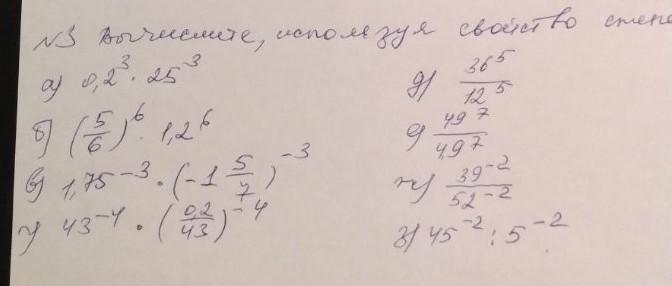 №3 Вычислите, используя свойство степе
а) 0,2³ · 25⁻³
б) (5/6)⁶ · 1,2⁶
в) 1,75⁻³ · (-1 5/7)⁻³
г) 43⁻⁴ · (0,2/43)⁻⁴
д) 36⁵/12⁵
е) 49⁷/4,9⁷
ж) 39⁻²/52⁻²
з) 45⁻² : 5⁻²